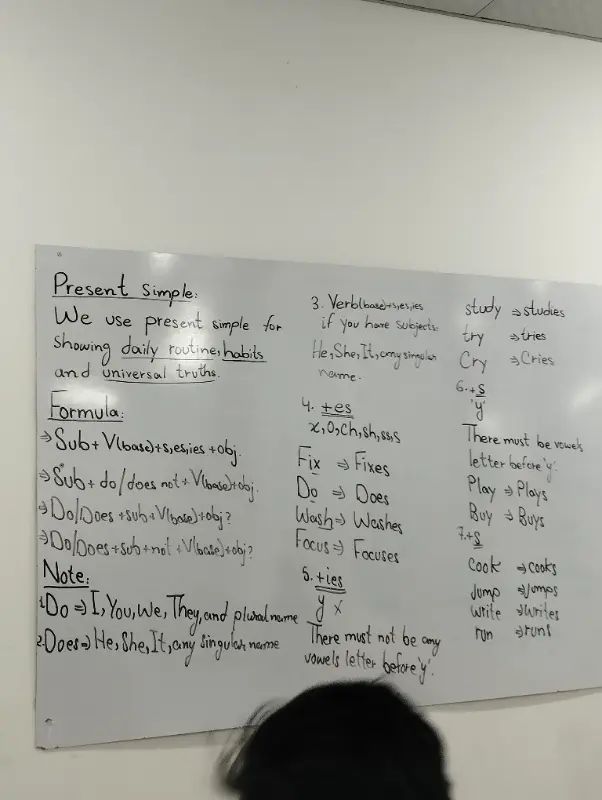 Present Simple:
We use present simple for
showing daily routine, habits
and universal truths.
Formula:
⇒Sub + V(base)+s,es,ies + obj.
⇒Sub + do/does not + V(base)+obj.
⇒Do/Does +sub+V(base)+obj?
⇒Do/Does+sub+not +V(base)+obj?
Note:
1.Do ⇒ I, You, We, They, and plural name
2.Does⇒ He, She, It, any singular name
3. Verb(base)+s,es,ies
if you have subjects:
He, She, It, any singular
name.
4. +es
x, O, ch, sh, ss, s
Fix ⇒ Fixes
Do ⇒ Does
Wash ⇒ Washes
Focus ⇒ Focuses
5. +ies
y x
There must not be any
vowels letter before 'y'.
study ⇒ studies
try ⇒ tries
Cry ⇒ Cries
6. +s
'y'
There must be vowels
letter before 'y'.
Play ⇒ Plays
Buy ⇒ Buys
7. +s
cook ⇒ cooks
Jump ⇒ Jumps
write ⇒ writes
run ⇒ runs